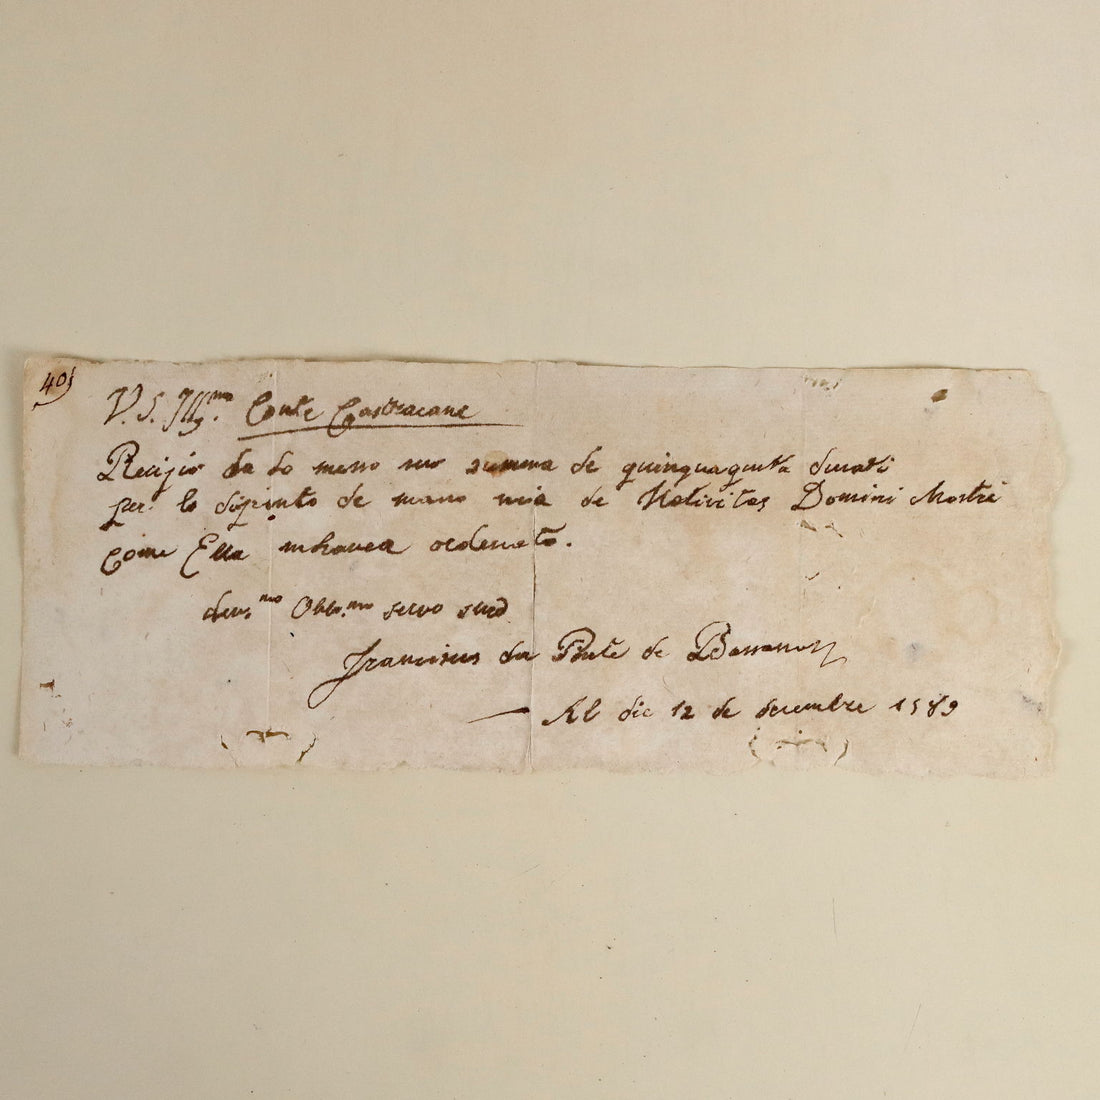 40
V. S. Illmo. Conte Castracane
Recipio da lo messo suo summa de quinquaginta ducati
per lo dipinto de mano mia de Nativitas Domini Nostri
come Ella mhavea ordenato.
dev.mo Obb.mo servo suo
Franciscus da Ponte de Bassano
Al die 12 de decembre 1589